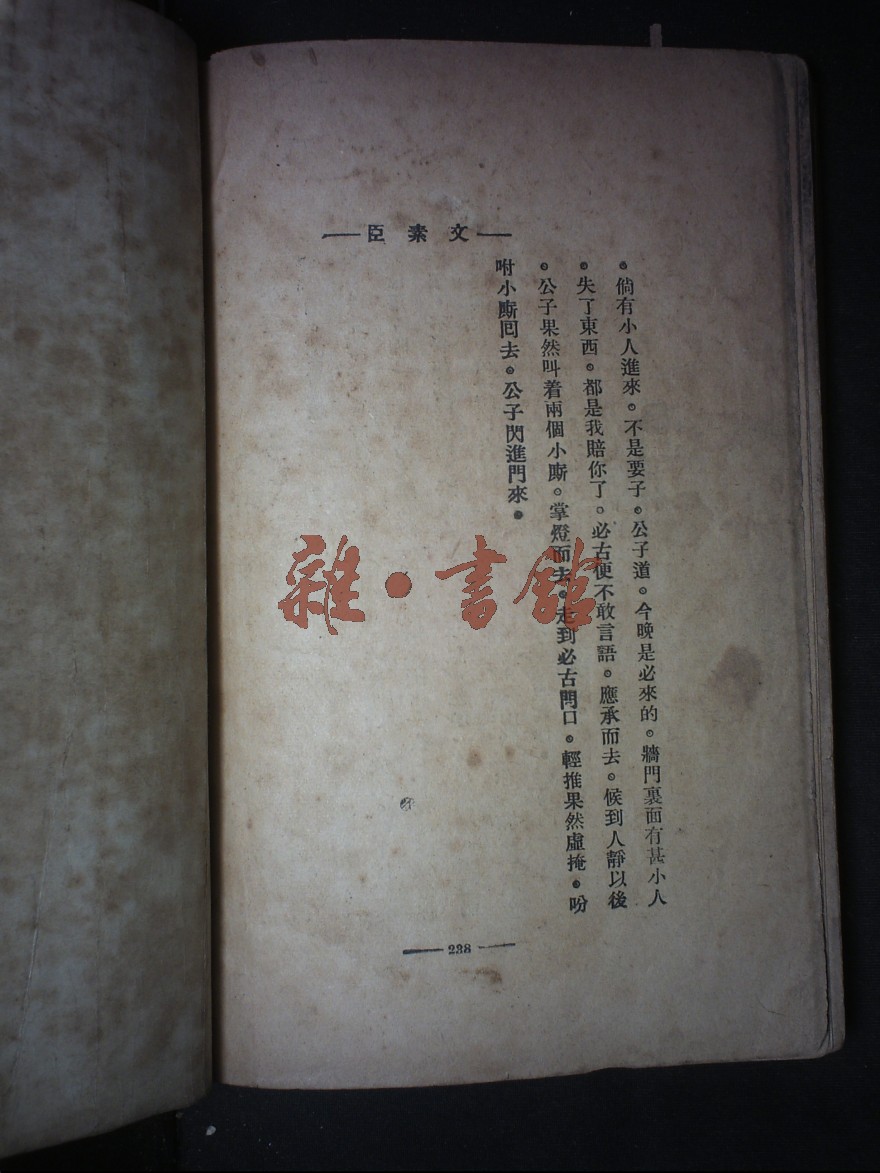 臣素文
。倘有小人進來。不是耍子。公子道。今晚是必來的。牆門裏面有甚小人
。失了東西。都是我賠你了。必古便不敢言語。應承而去。候到人靜以後
。公子果然叫着兩個小廝。掌燈而去。走到必古門口。輕推果然虛掩。吩
咐小廝回去。公子閃進門來。
雜·書館
238